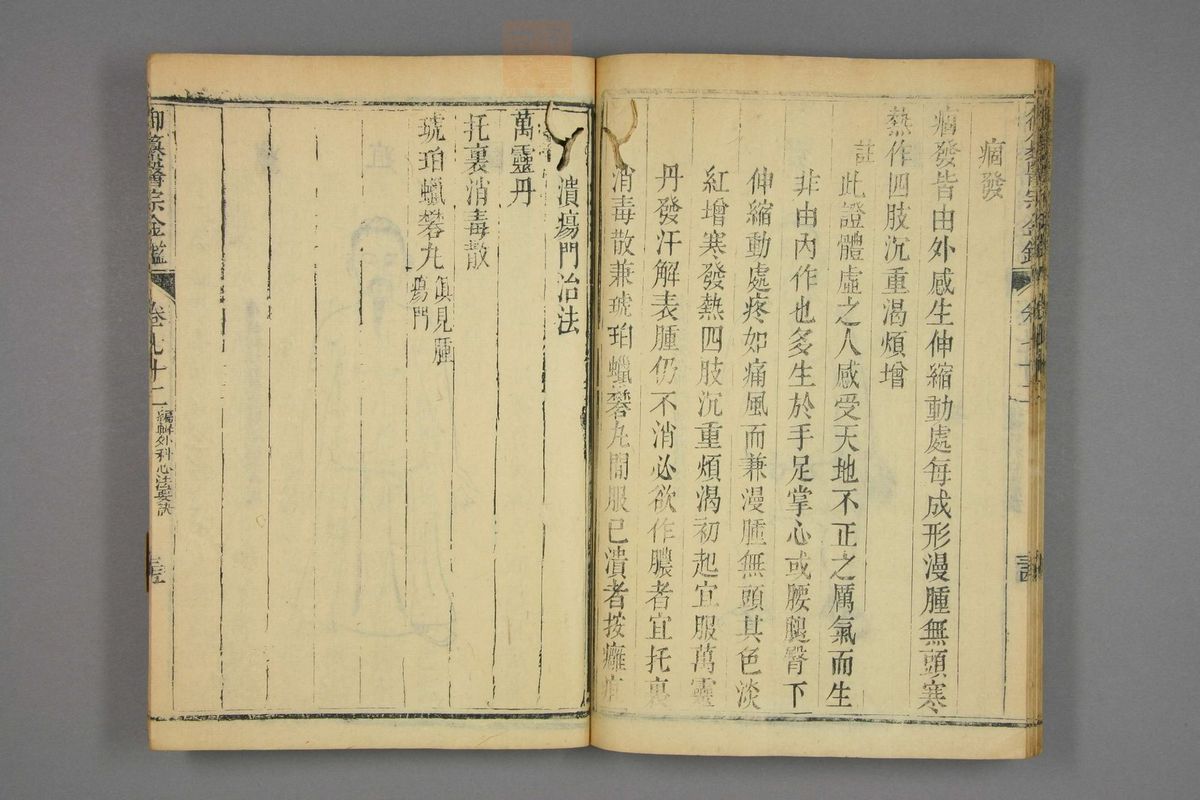 痼發
痼發皆由外感生伸縮動處每成形漫腫無頭寒
熱作四肢沉重渴煩增
註
此證體虛之人感受天地不正之厲氣而生
非由內作也多生於手足掌心或腰腿臀下
伸縮動處疼如痛風而兼漫腫無頭其色淡
紅增寒發熱四肢沉重煩渴初起宜服萬靈
丹發汗解表腫仍不消必欲作膿者宜托裏
消毒散兼琥珀蠟礬丸間服已潰者按癰疽
潰瘍門治法
萬靈丹
托裏消毒散
琥珀蠟礬丸俱見腫
瘍門
御纂醫宗金鑑
卷七十二
編輯外科心法要訣